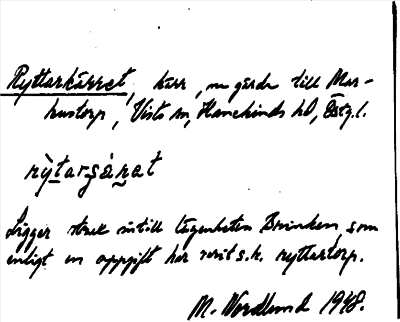 Ryttarkärret, kärr, nu gärde till Mar-
hustorp, Vists sn, Hanekinds hd, Östg.l.
rỳtarçæ̀rat
Ligger strax intill lägenheten Brinken, som
enligt en uppgift har varit s.k. ryttartorp.
M. Nordlund 1948.